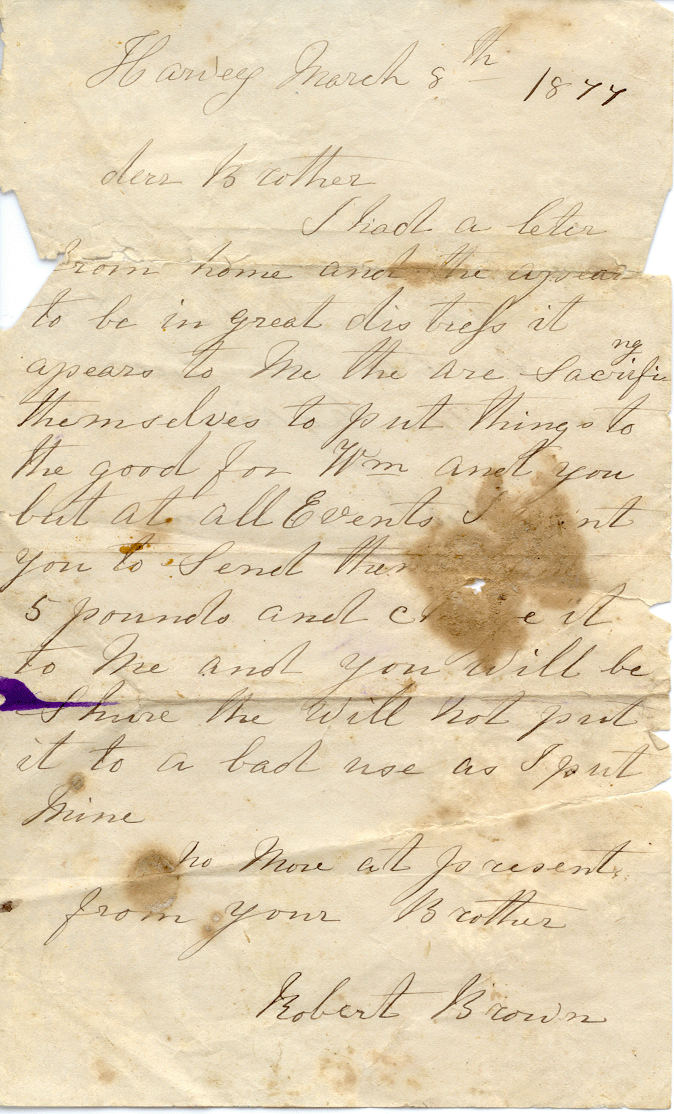 Harvey March 8th 1877
derr Brother
I had a leter
from home and the apear
to be in great distress it
apears to Me the are Sacrifing
themselves to put things to
the good for Wm and you
but at all Events I
you to Send
5 pounds and it
to Me and you will be
Shure the will not put
it to a bad use as I put
Mine
no More at present
from your Brother
Robert Brown